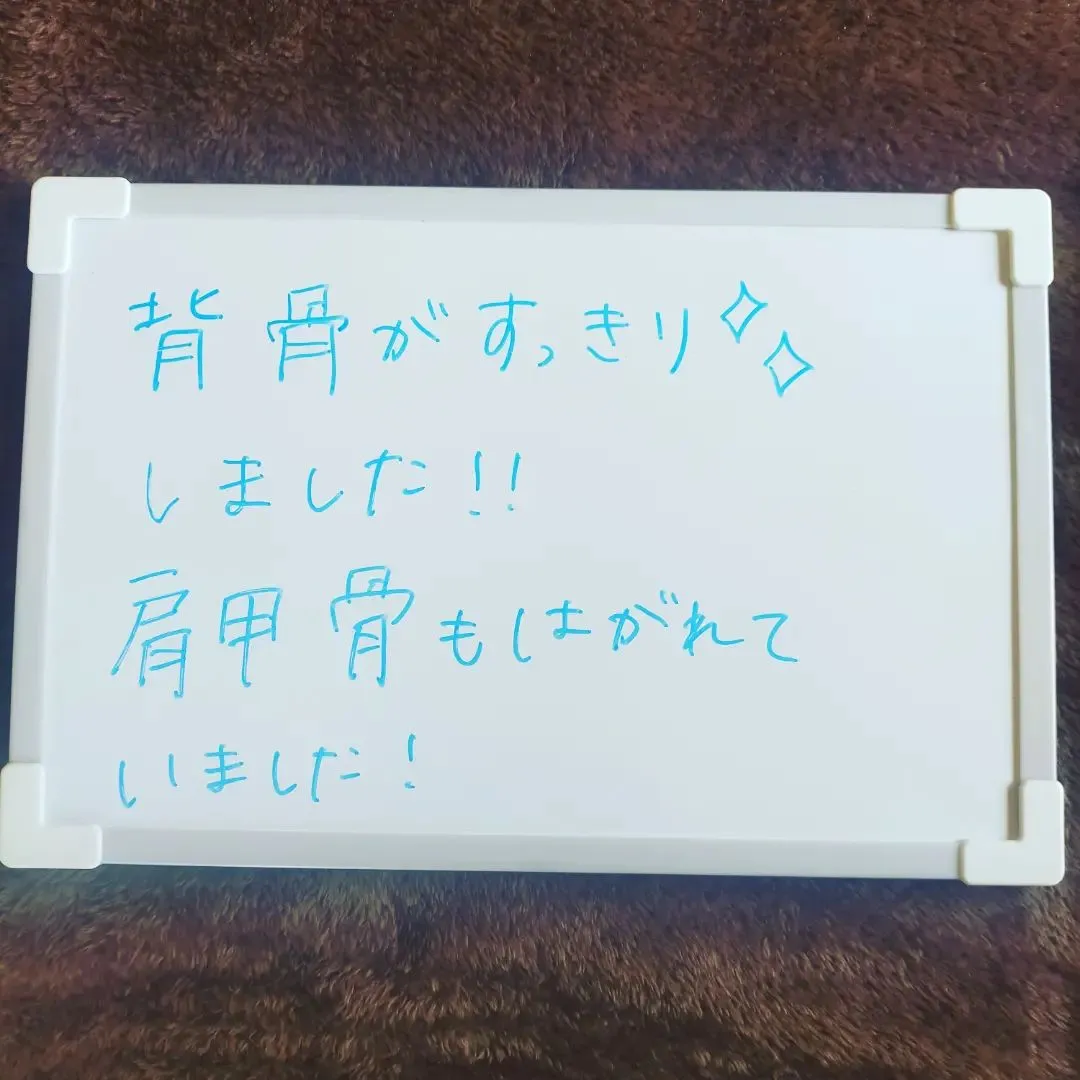 背骨がすっきり✧✧
しました!!
肩甲骨もはがれて
いました!